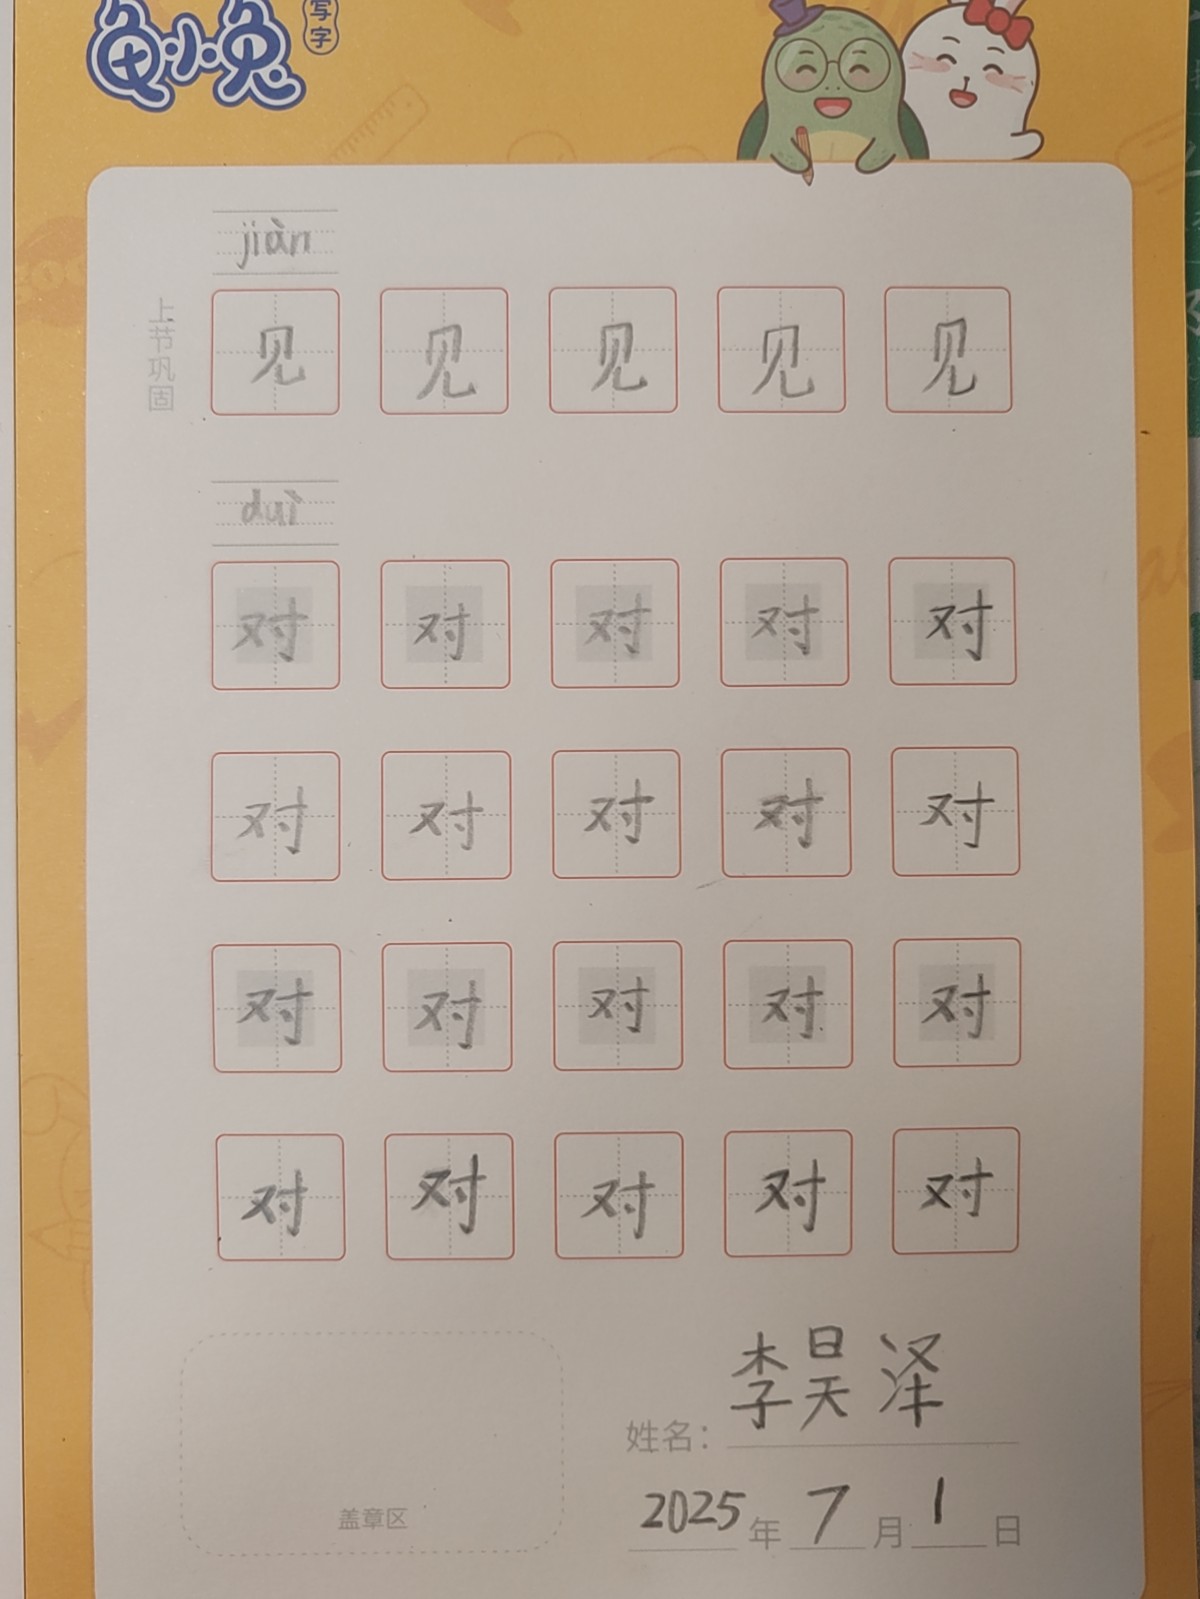 龟小兔
写字
jiàn
上节巩固
见 见 见 见 见
duì
对 对 对 对 对
对 对 对 对 对
对 对 对 对 对
对 对 对 对 对
姓名：李昊泽
2025年7月1日
盖章区